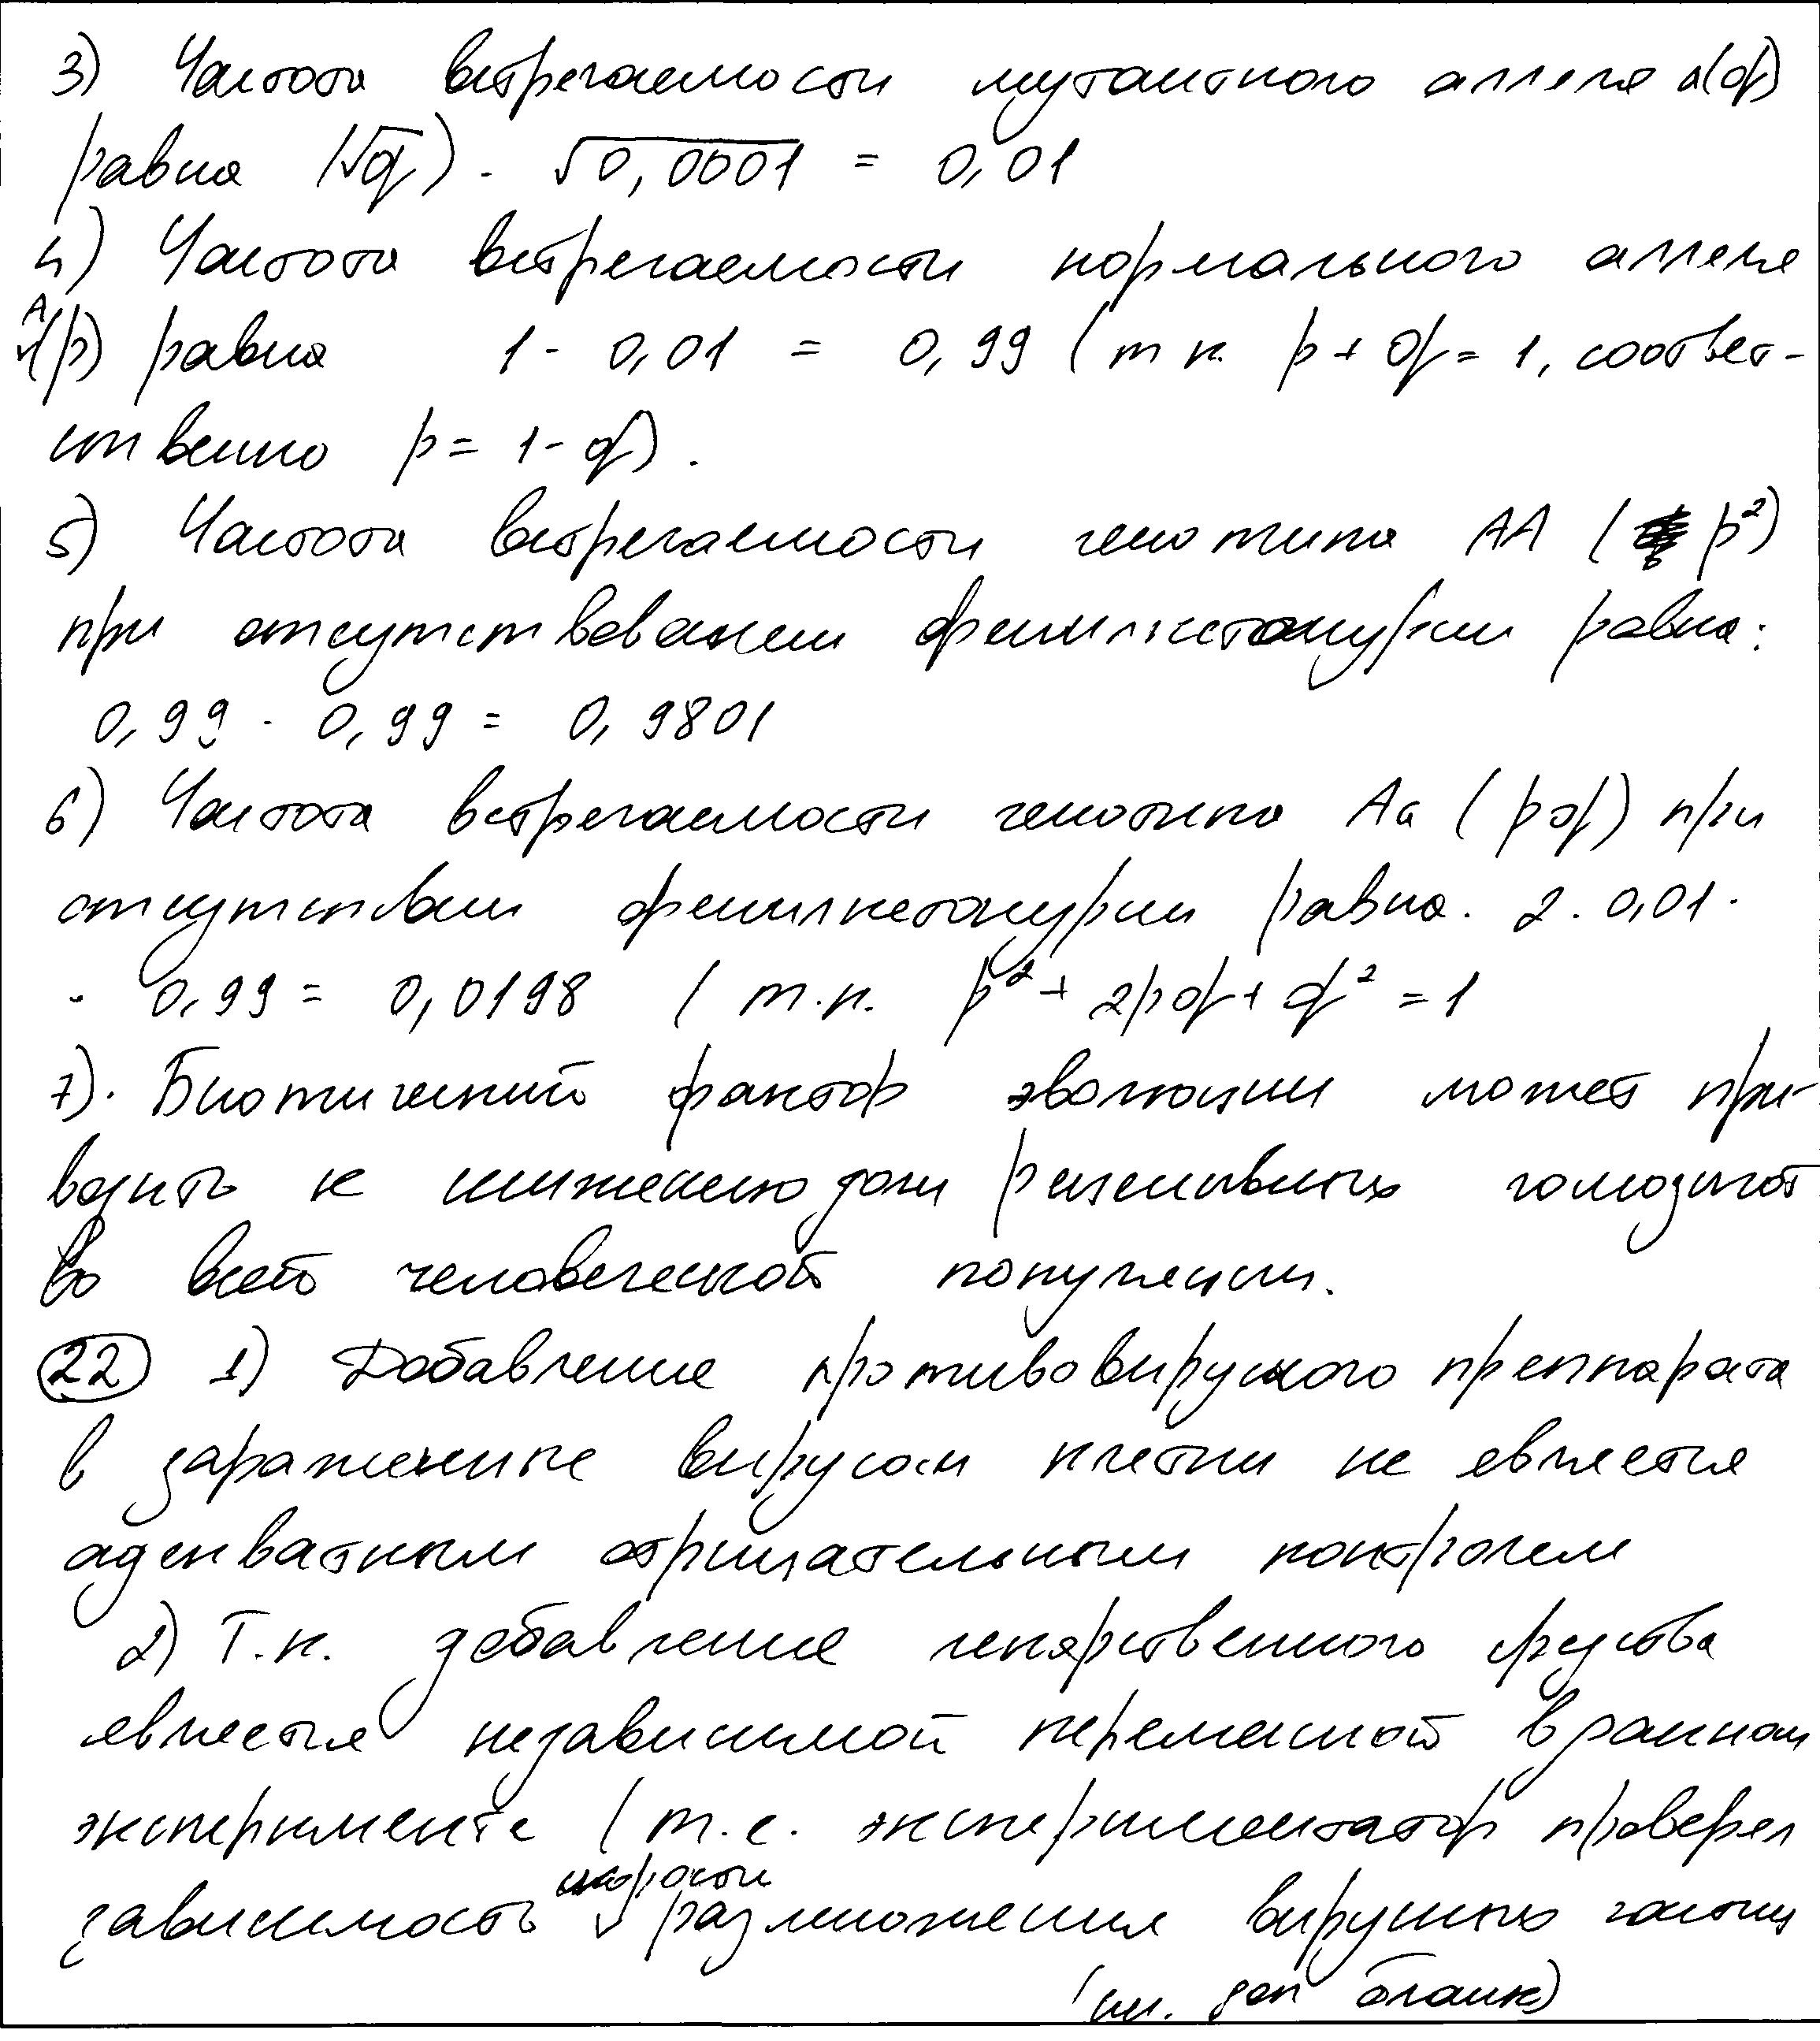 3) Частота встречаемости мутантного аллеля a(q)
равна (√q) . √0,0001 = 0,01
4) Частота встречаемости нормального аллеля
A(p) равна 1 - 0,01 = 0,99 (т к. p + q = 1, соответ-
ственно p = 1 - q).
5) Частота встречаемости генотипа AA (p²)
при отсутствовании фенилкетонурии равна:
0,99 · 0,99 = 0,9801
6) Частота встречаемости генотипа Aa (pq) при
отсутствии фенилкетонурии равна. 2 · 0,01 ·
· 0,99 = 0,0198 (т.к. p² + 2pq + q² = 1
7). Биотический фактор эволюции может при-
водить к снижению доли рецессивных гомозигот
во всей человеческой популяции.
22 1) Добавление противовирусного преппарата
в зараженные вирусом клетки не является
адекватным отрицательным контролем
2) Т.к. добавление лекарственного средства
является независимой переменной в данном
эксперименте (т.е. экспериментатор проверял
зависимость скорости размножения вирусных частиц
(см. доп бланк)